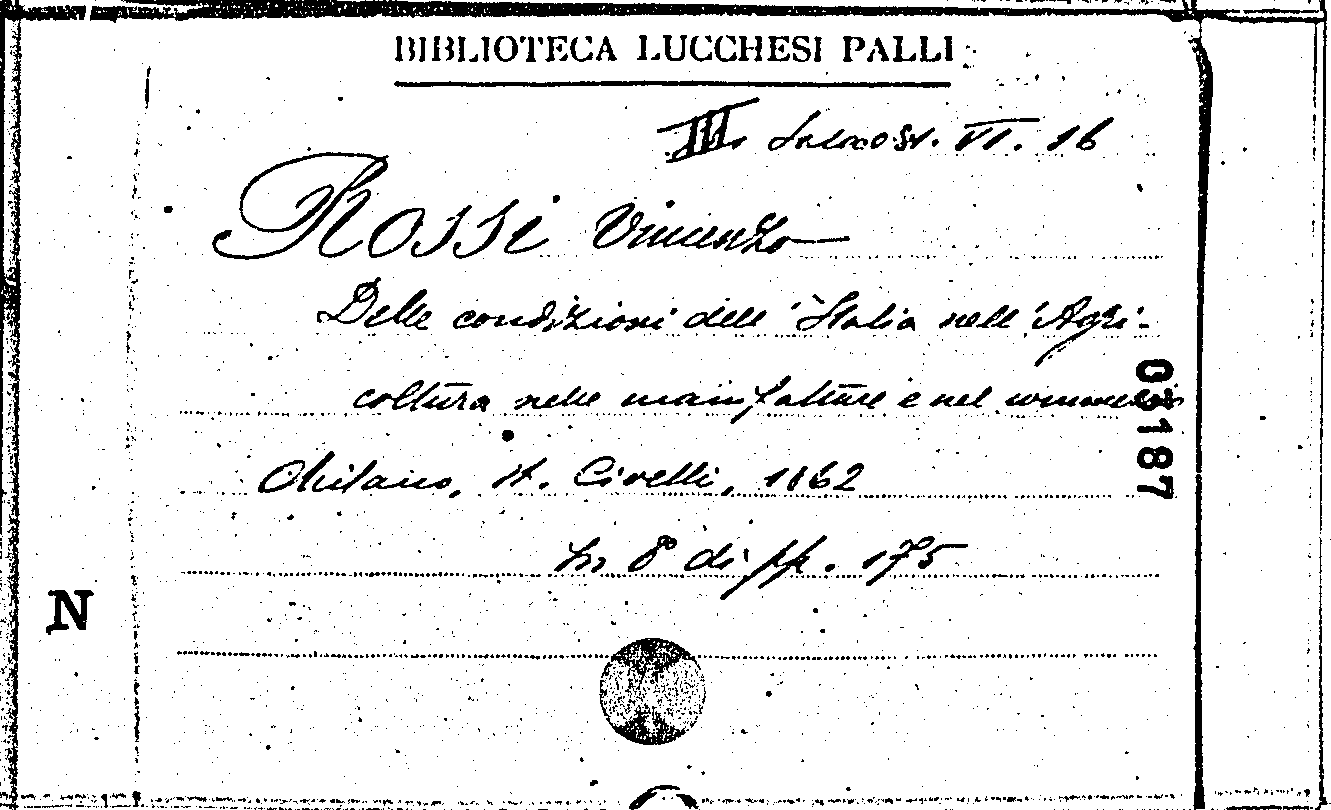 BIBLIOTECA LUCCHESI PALLI
III. VI. 16
Rossi Vincenzo
Delle condizioni dell'Italia nell'Agri-
coltura nelle manifatture e nel commercio
Milano, St. Civelli, 1862
In 8° di pp. 175
03187
N